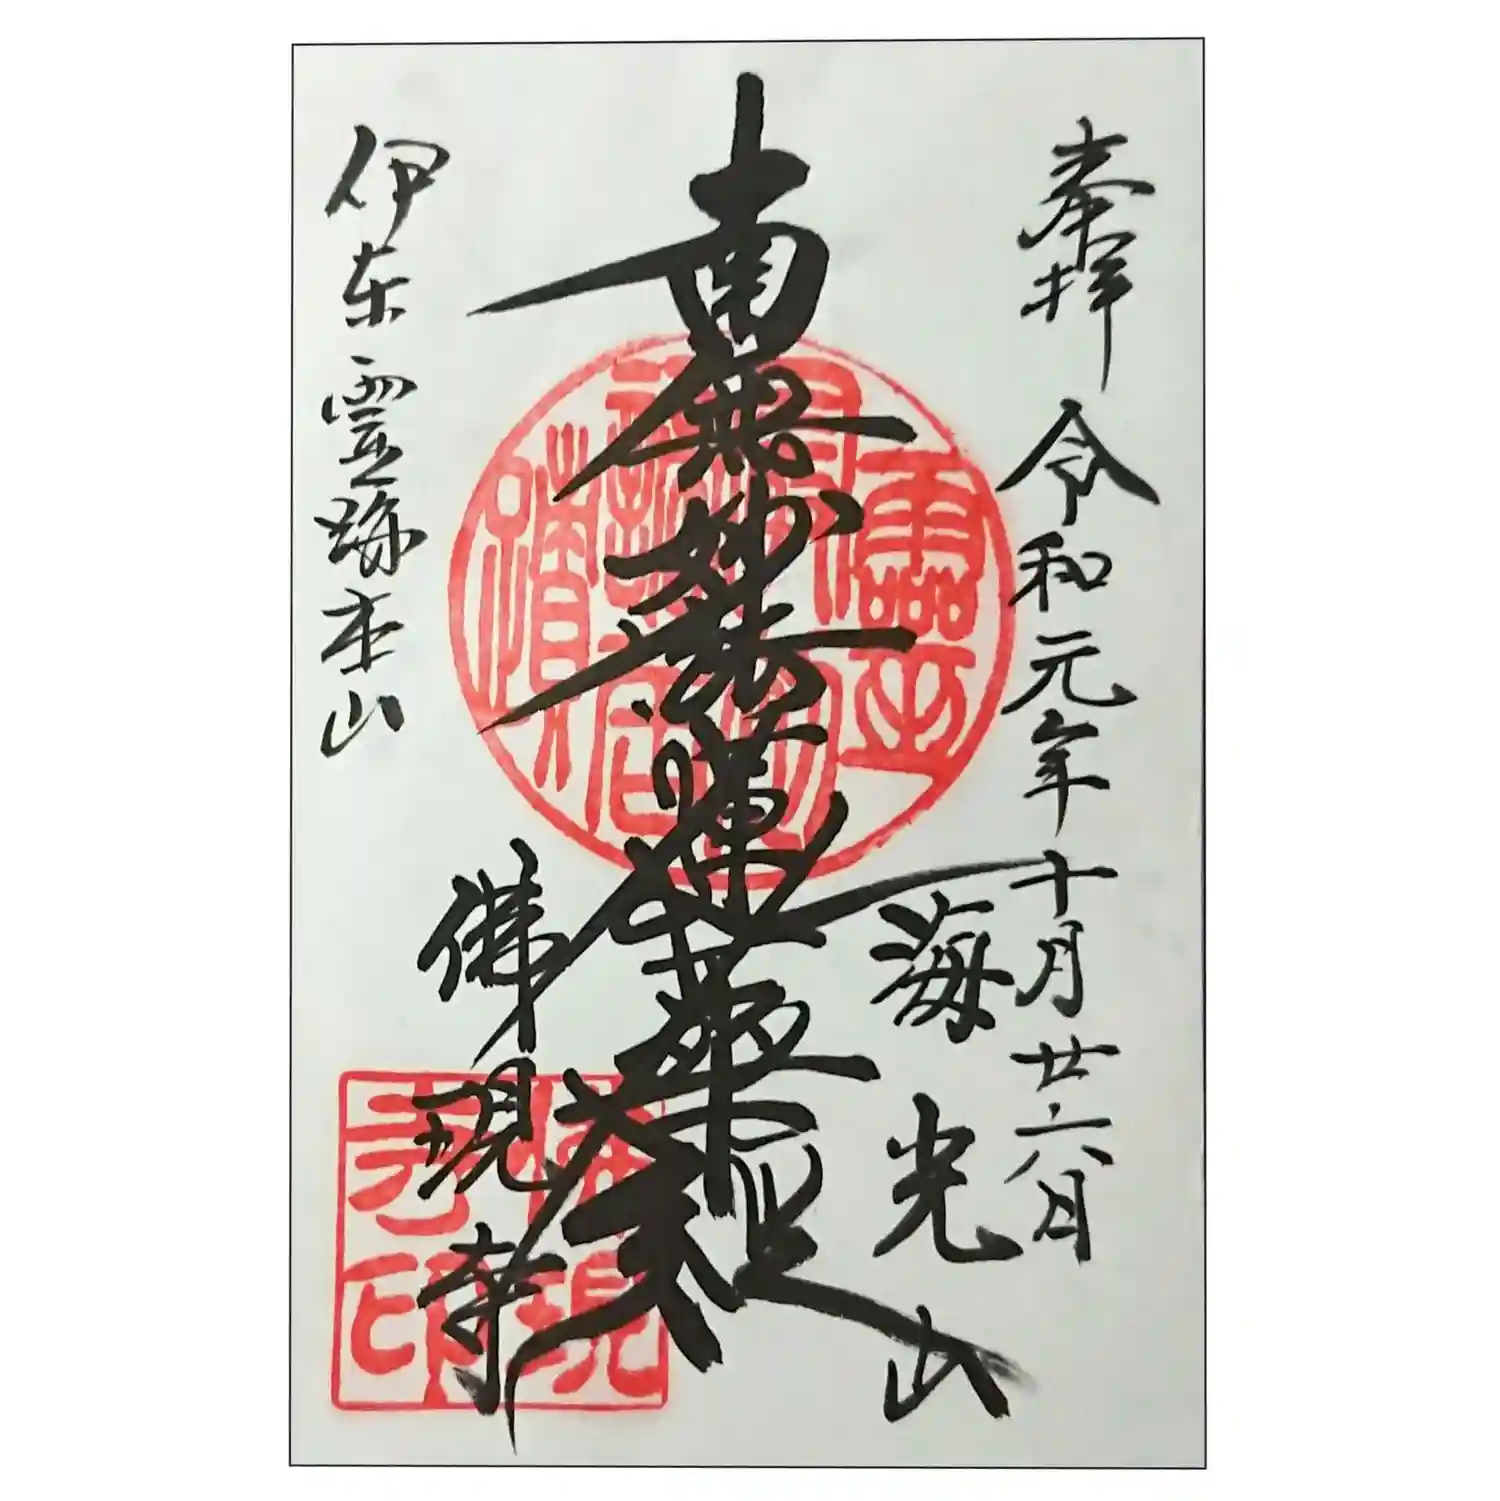 奉拝 令和元年十月廿六日
海光山
南無妙法蓮華経
佛現寺
伊东霊跡本山